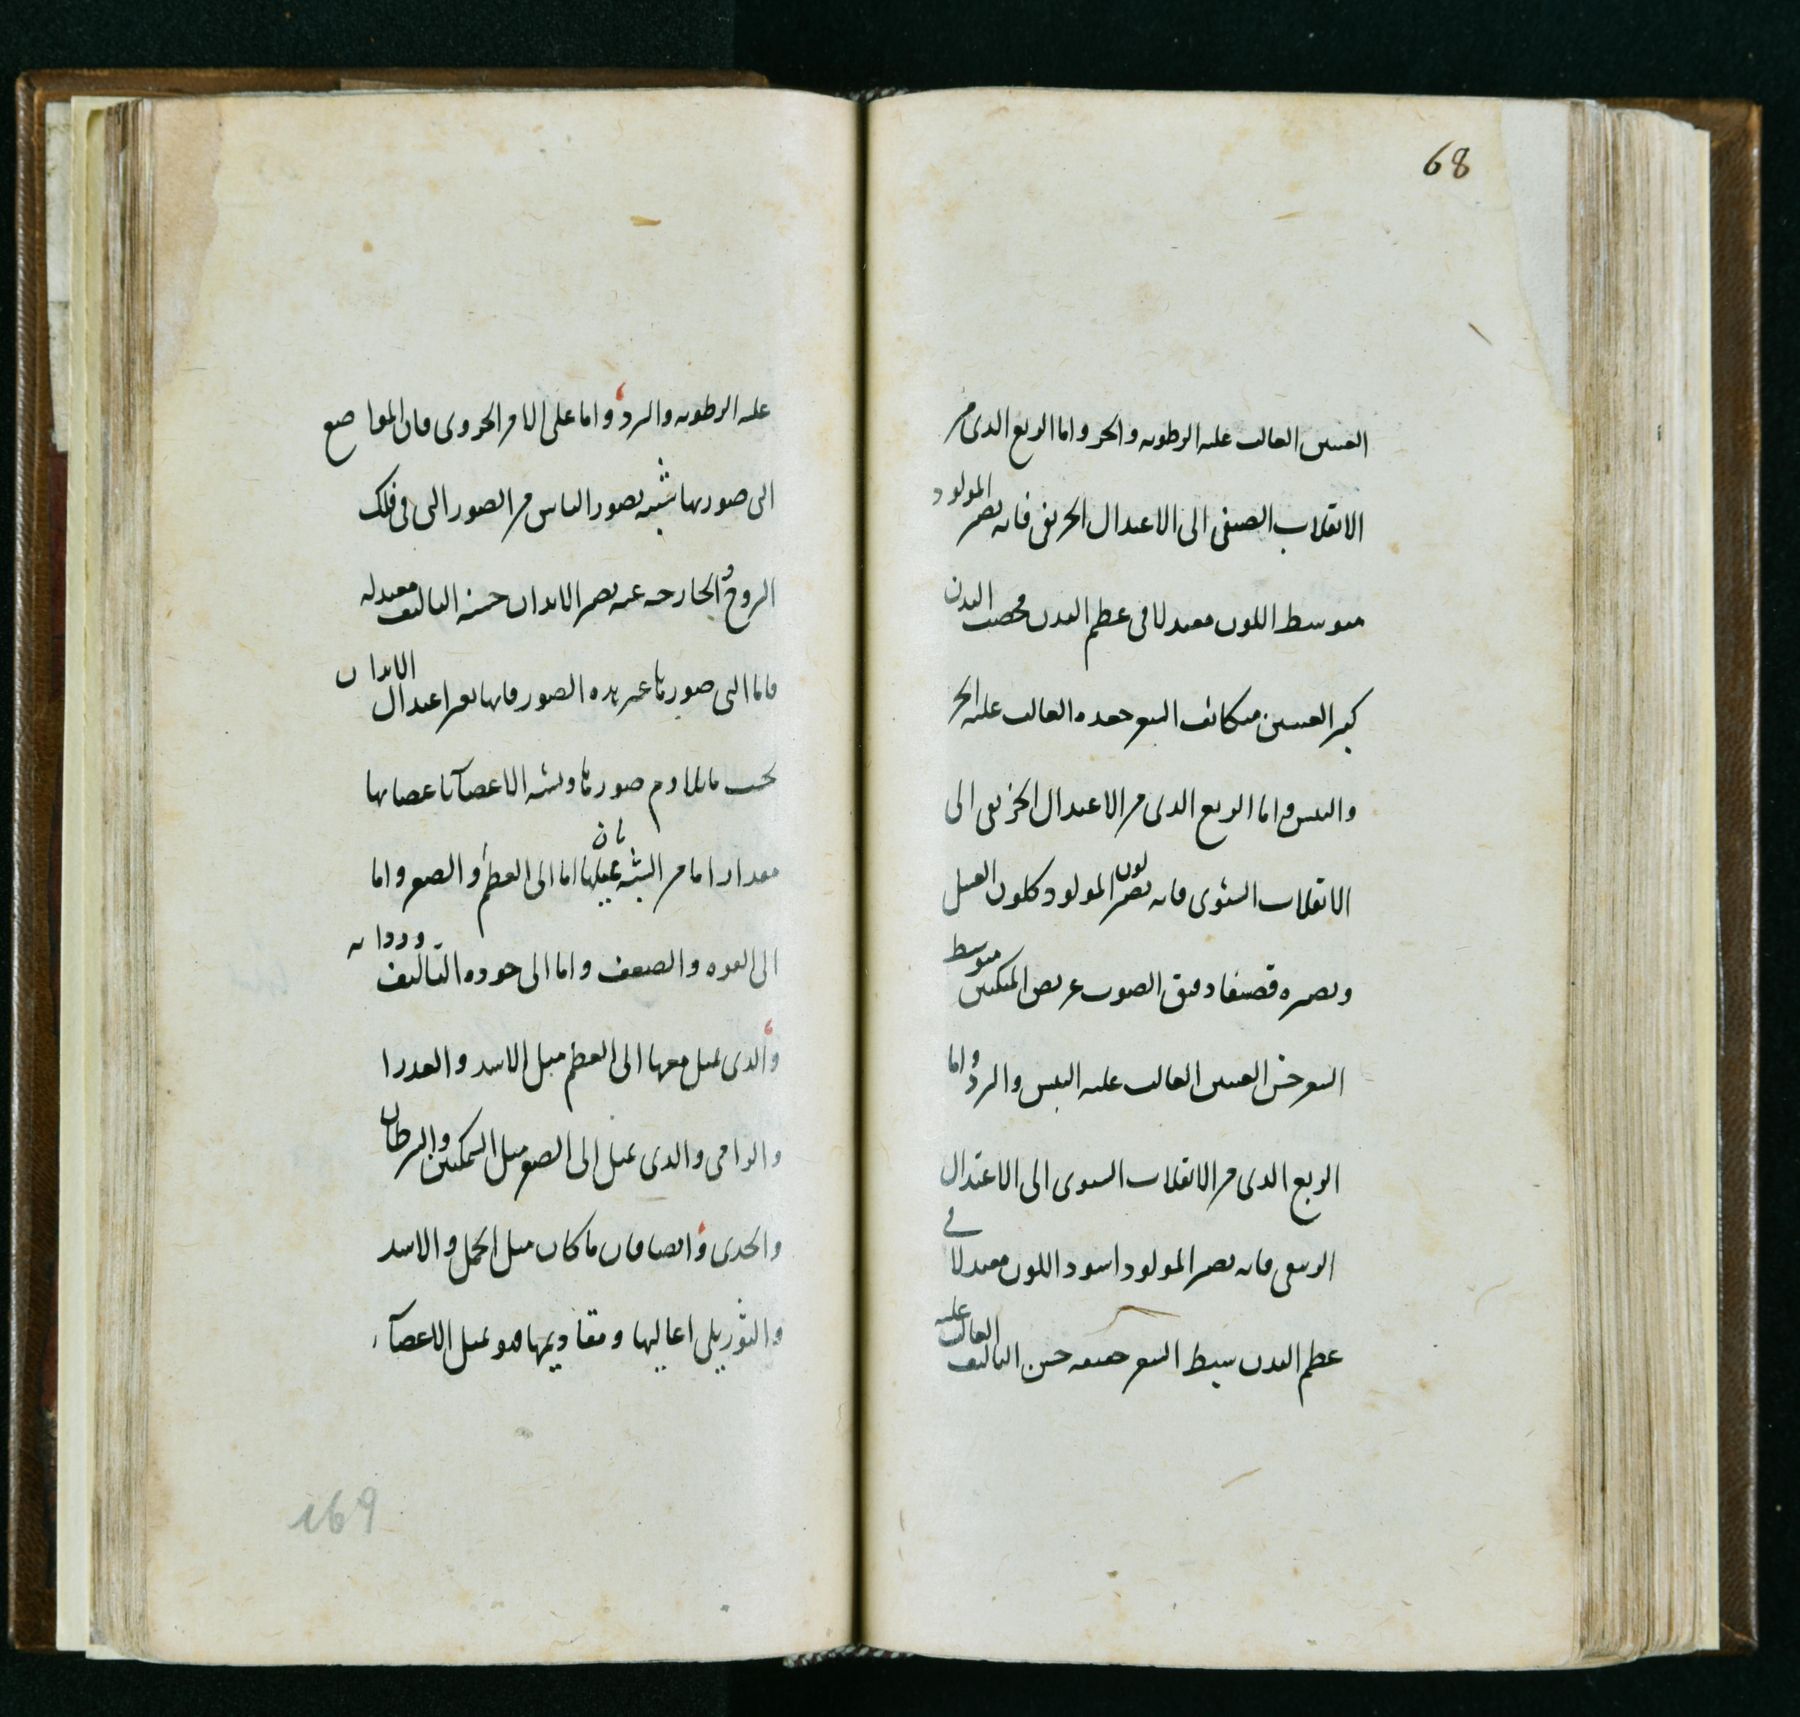 68
العينين الغالب عليه الرطوبه والحر واما الربع الذى من
الانقلاب الصيفى الى الاعتدال الخريفى فانه يصير المولود
متوسط اللون معتدلا فى عظم البدن مخصب البدن
كبير العينين متكاثف الشعر جعده الغالب عليه الحر
واليبس واما الربع الذى من الاعتدال الخريفى الى
الانقلاب الشتوى فانه يصير لون المولود كلون العسل
ويصيره قضيفا دقيق الصوت عريض المنكبين متوسط
الشعر حسن العينين الغالب عليه اليبس والبرد واما
الربع الذى من الانقلاب الشتوى الى الاعتدال
الربيعى فانه يصير المولود اسود اللون معتدلا فى
عظم البدن سبط الشعر خفيفه حسن التاليف الغالب عليه
عليه الرطوبه والبرد واما على الامر الجزوى فان المواضع
التى صورتها شبيه بصور الناس من الصور التى فى فلك
البروج والخارجه عنه يصير الابدان حسنه التاليف معتدله
فاما التى صورتها غير هذه الصور فانها تغير اعتدال الابدان
بحسب ما يلاوم صورتها وتشبه الاعضآ باعضايها
مقدارا ما من الشبه بان يميلها اما الى العظم والصغر واما
الى القوه والضعف واما الى جوده التاليف وردااته
والذى يميل معها الى العظم مثل الاسد والعذرا
والرامى والذى يميل الى الصغر مثل السمكتين والسرطان
والجدى وايضا فان ما كان مثل الحمل والاسد
والثور يلى اعاليها ومقاديمها هو يميل الاعضآء
169